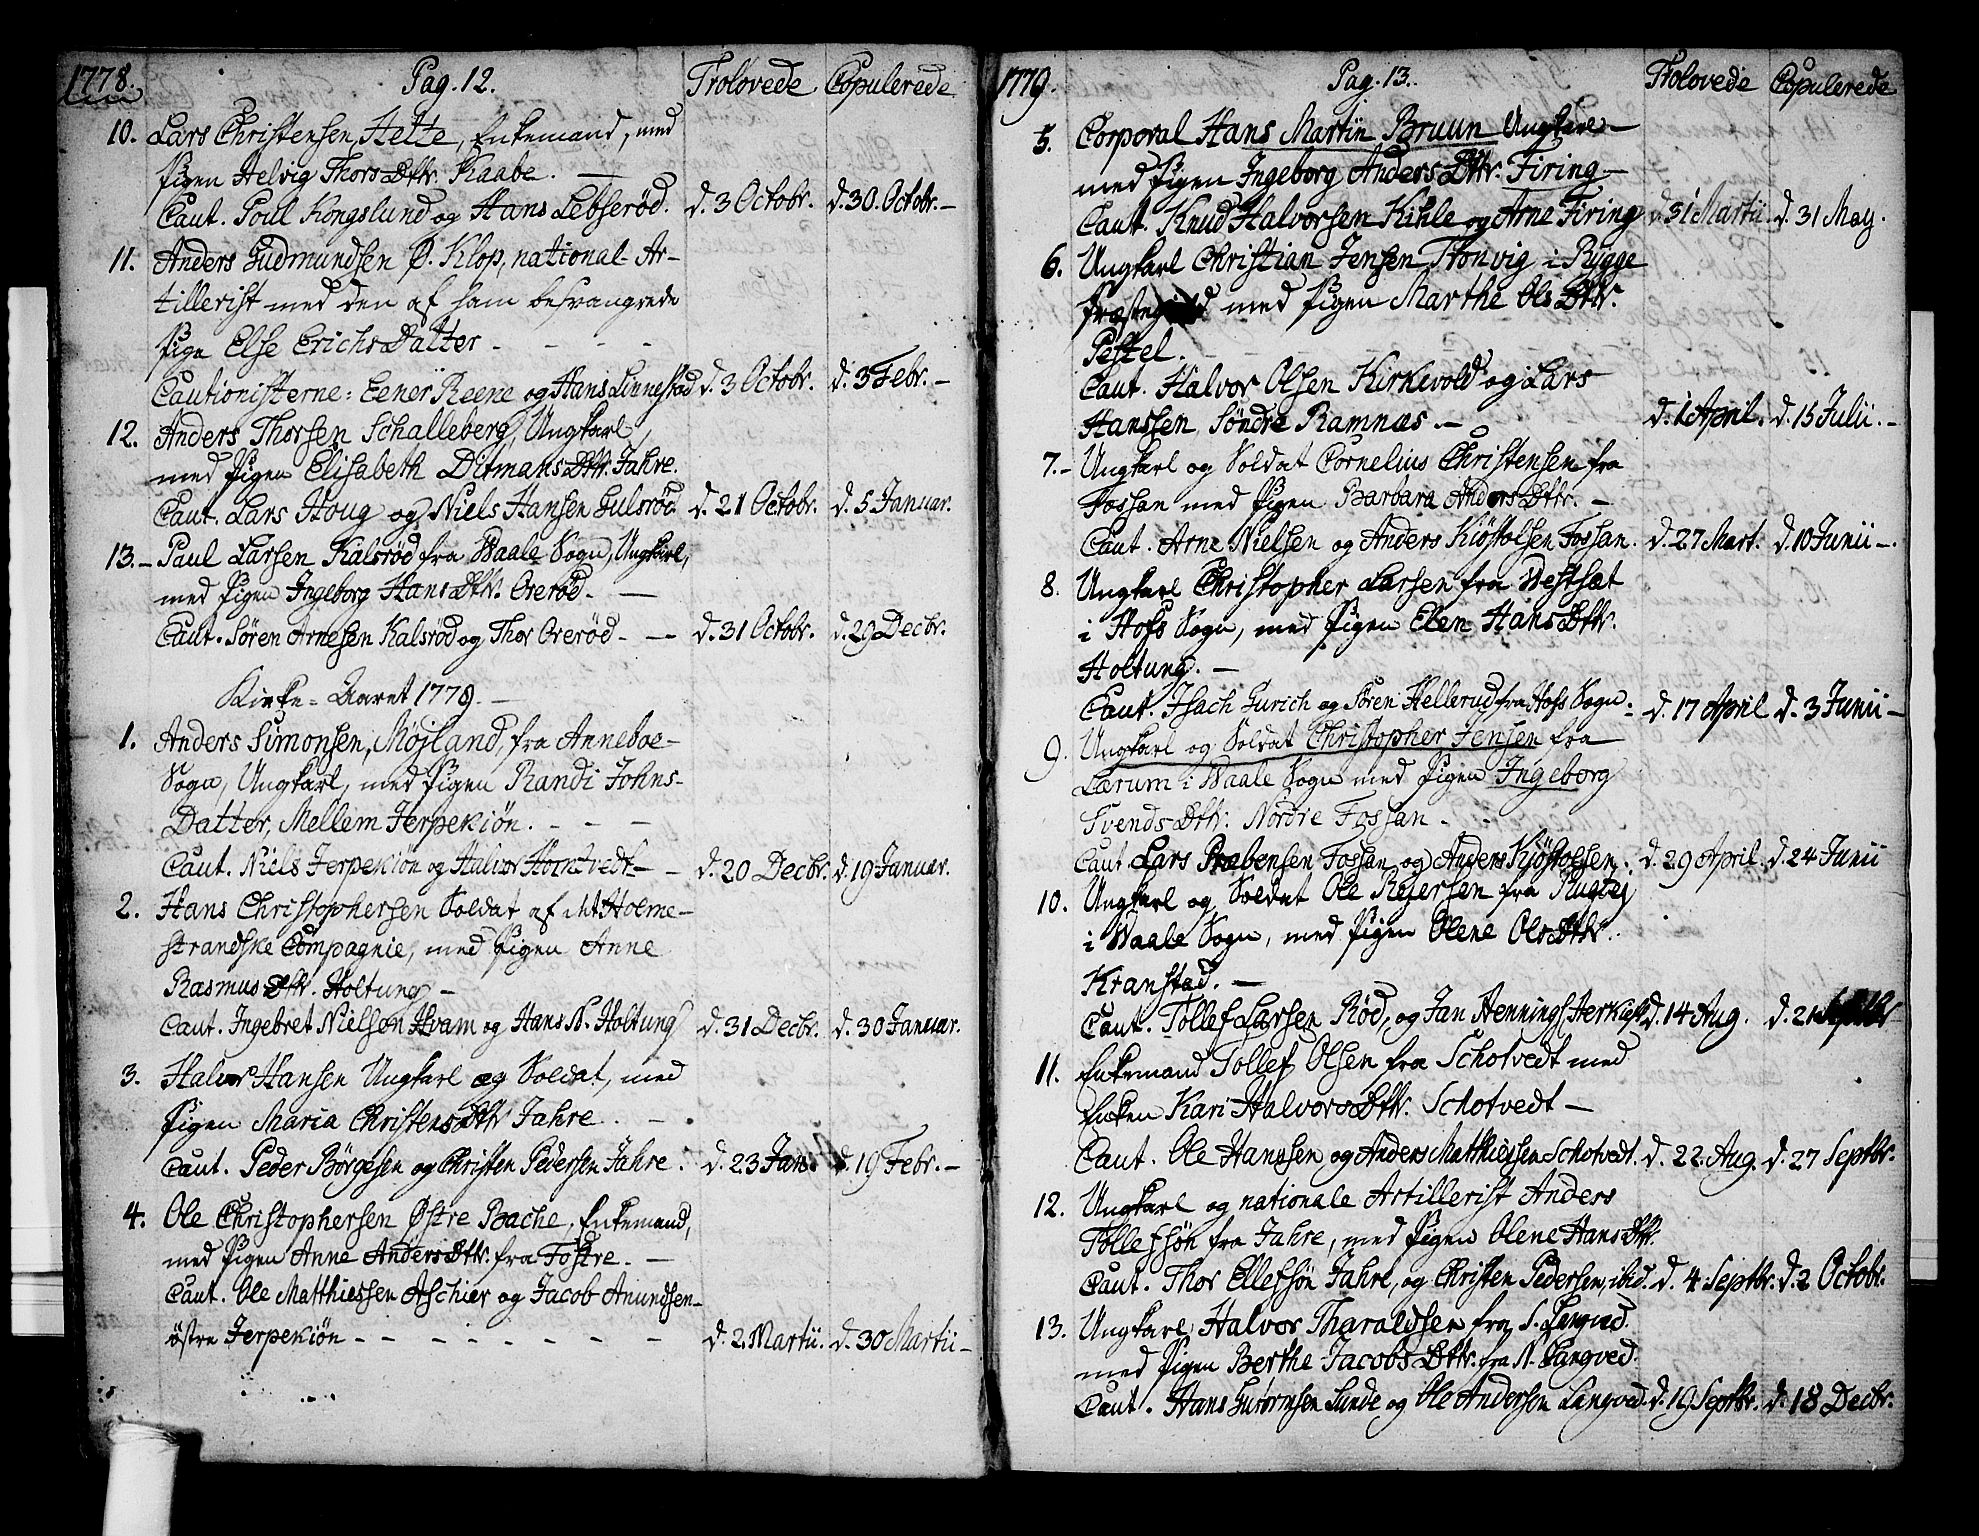 1778. Pag. 12. Trolovede Copulerede
10. Lars Christensen Aette, Enkemand, med
Pigen Helvig Thors Dttr. Kaabe. —
Caut. Poul Kongslund og Hans Lebserød. d. 3 Octobr. d. 30. Octobr. —
11. Anders Gudmundsen Ø. Klop, national-Ar-
tillerist med den af ham besvangrede
Pige Else Erichs Datter - - - -
Cautionisterne: Eener Reene og Hans Linnestad d. 3 Octobr. d. 3 Febr. —
12. Anders Thorsen Schalleberg, Ungkarl,
med Pigen Elisabeth Ditmans Dttr. Jahre.
Caut. Lars Houg og Niels Hansen Gulsrød d. 21 Octobr. d. 5. Januar.
13. — Paul Larsen Kalsrød fra Waale Sogn, Ungkarl,
med Pigen Ingeborg Hans Dttr. Orerød. —
Caut. Søren Arnesen Kalsrød og Thor Orerød - — d. 31 Octobr. d. 29 Decbr.
Kirke-Aaret 1779. —
1. Anders Simonsen, Møjland, fra Anneboe-
Sogn, Ungkarl, med Pigen Randi Johns-
Datter, Mellem Jerpekiøn. - - -
Caut. Niels Jerpekiøn og Halvor Horntvedt — d. 20 Decbr. d. 19 Januar.
2. Hans Christophersen Soldat af det Holme-
strandske Compagnie, med Pigen Anne
Rasmus Dttr. Holtung —
Caut. Ingebret Nielson Hvam og Hans N. Holtung d. 31 Decbr. d. 30 Januar.
3. Halvor Hansen Ungkarl og Soldat, med
Pigen Maria Christens Dttr Jahre. —
Caut. Peder Børgesen og Christen Pedersen Jahre. d. 23 Jan. d. 19 Febr. —
4. Ole Christophersen Østre Bache, Enkemand,
med Pigen Anne Anders Dttr. fra Fostre. —
Caut. Ole Matthiessen Aschier og Jacob Anundsen
østre Jerpekiøn - - - - - - - - d. 2. Martii. d. 30 Martii —
1779. Pag. 13. Trolovede Copulerede
5. Corporal Hans Martin Bruun Ungkarl —
med Pigen Ingeborg Anders Dttr. Firing —
Caut. Knud Halvorsen Kihle og Arne Firing d. 31 Martii d. 31 May.
6. Ungkarl Christian Jensen Tronvig i Rygge
med Pigen Marthe Ols Dttr.
Pestel. - - -
Caut. Halvor Olsen Kirkevold og Lars
Hanssen Søndre Ramnæs. — d. 1 April. d. 15 Julii. —
7. — Ungkarl og Soldat Cornelius Christensen fra
Fossan med Pigen Barbara Anders Dttr. —
Caut. Arne Nielsen og Anders Kiøstolsen Fossan. d. 27 Mart. d. 10 Junii —.
8. Ungkarl Christopher Larsen fra Westsæt
i Hofs Sogn, med Pigen Elen Hans Dttr.
Holtung. —
Caut. Isach Gurich og Søren Hellerud fra Hofs Sogn. d. 17 April d. 3 Junii —
9. Ungkarl og Soldat Christopher Jensen fra
Lærum i Waale Sogn med Pigen Ingeborg
Svends Dttr. Nordre Fossan - -
Caut Lars Prabensen Fossan og Anders Kjøstolsen. d. 29 April. d. 24 Junii
10. Ungkarl og Soldat Ole Rejersen fra
i Waale Sogn, med Pigen Olene Ols Dttr.
Kranstad. —
Caut. Tollef Larsen Rød, og Jan Hennings d. 14 Aug. d. 21
11. Enkemand Tollef Olsen fra Schotvedt med
Enken Kari Halvors Dttr. Schotvedt —
Caut. Ole Hanssen og Anders Matthiessen Schotvedt. d. 22. Aug. d. 27 Septbr.
12. Ungkarl og nationale Artillerist Anders
Tollefsøn fra Jahre, med Pigen Olene Hans Dttr.
Caut. Thor Ellefsøn Jahre, og Christen Pedersen, ibid. d. 4 Septbr. d. 2 Octobr.
13. Ungkarl Halvor Tharaldsen fra S. Langved.
med Pigen Berthe Jacobs Dttr. fra N. Langved.
Caut. Hans Gutormsen Lunde og Ole Andersen Langved. d. 19 Septbr. d. 18 Decbr.